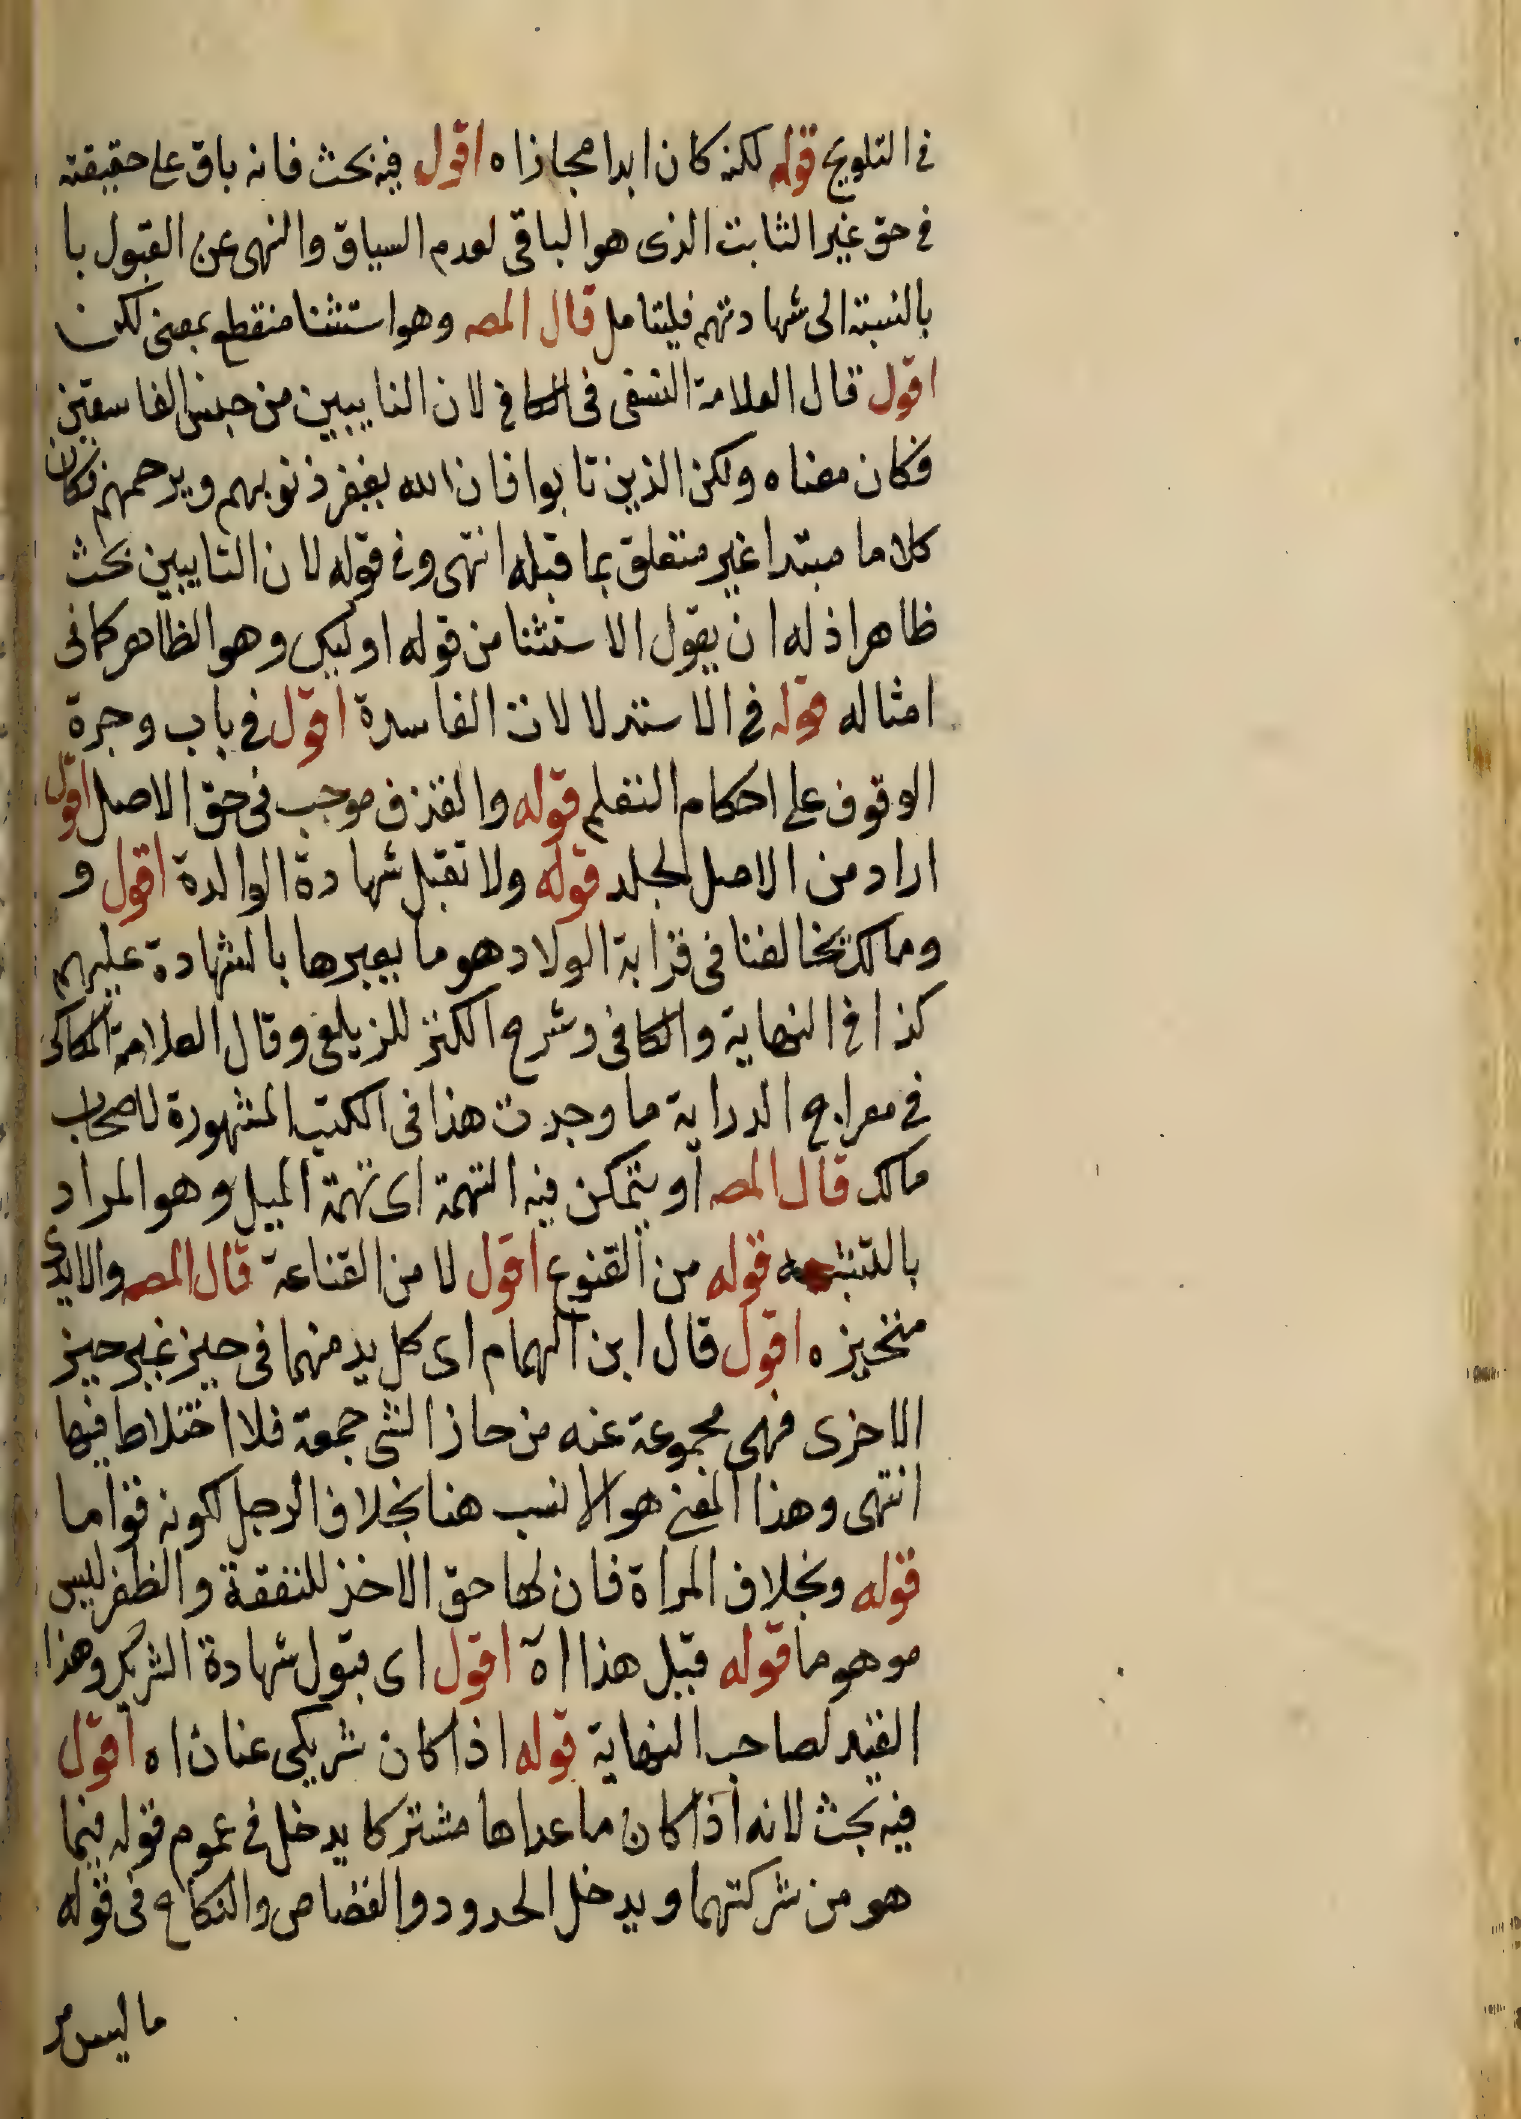 في التلويح قوله لكنه كان ابدا مجازا ه اقول فيه بحث فانه باق على حقيقته
في حق غير الثابت الذى هو الباقى لعدم السياق والنهى عن القبول با
بالنسبة الى شهادتهم فليتامل قال المصه وهو استثنا منقطع بمعنى لكن
اقول قال العلامة النسفى فى الكافى لان التايبين من جنس الفاسقين
فكان معناه ولكن الذين تابوا فان الله يغفر ذنوبهم ويرحمهم فكان
كلاما مبتدا غير متعلق بما قبله انتهى وفى قوله لان التايبين بحث
ظاهر اذ له ان يقول الاستثنا من قوله اوليك وهو الظاهر كما فى
امثاله قوله فى الاستدلالات الفاسدة اقول فى باب وجرة
الوقوف على احكام النظم قوله والقذف موجب فى حق الاصل اقول
اراد من الاصل الجلد قوله ولا تقبل شهادة الوالدة اقول و
ومالك يخالفنا فى قرابة الولاد هو ما يعبرها بالشهادة عليهم
كذا فى النهاية والكافى وشرح الكنز للزيلعى وقال العلامة الكاكى
فى معراج الدراية ما وجدت هذا فى الكتب المشهورة لاصحاب
مالك قال المصه او يتمكن فيه التهمة اى تهمة الميل وهو المراد
قوله من القنوع اقول لا من القناعة قال المصه والايدى
متحيزه اقول قال ابن الهمام اى كل يد منهما فى حيز غير حيز
الاخرى فهى مجموعة عنه من حاز الشى جمعه فلا اختلاط فيها
انتهى وهذا المعنى هو الانسب هنا بخلاف الرجل لكونه قواما
قوله وبخلاف المراة فان لها حق الاخذ للنفقة والظفر ليس
موهوما قوله قبل هذا اه اقول اى قبول شهادة الشريك وهذا
القيد لصاحب النهاية قوله اذا كان شريكى عنان اه اقول
فيه بحث لانه اذا كان ما عداها مشتركا يدخل فى عموم قوله فيما
هو من شركتهما ويدخل الحدود والقصاص والنكاح فى قوله
ما ليس مر